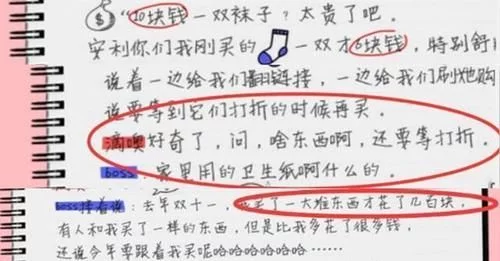 "10块钱一双袜子?太贵了吧。
安利你们我刚买的一双才6块钱,特别舒!
说着一边给我们翻链接,一边给我们刷她购
说要等到它们打折的时候再买。
滴噢好奇了,问,啥东西啊,还要等打折。
boss:家里用的卫生纸啊什么的。
boss接着说:去年双十一,我买了一大堆东西才花了几百块,
有人和我买了一样的东西,但是比我多花了很多钱,
还说今年要跟着我买呢哈哈哈哈哈哈……